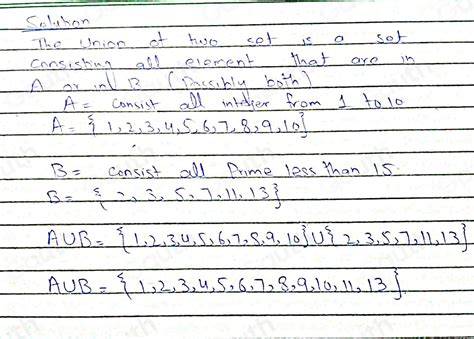 Solution
The Union of two set is a set
Consisting all element that are in
A or in B (Possibly both)
A = Consist all integer from 1 to 10
A = { 1,2,3,4,5,6,7,8,9,10}
B = consist all Prime less than 15.
B = { 2, 3, 5, 7, 11, 13}
AUB = {1,2,3,4,5,6,7,8,9,10}U{ 2,3,5,7,11,13}
AUB = {1,2,3,4,5,6,7,8,9,10,11,13}